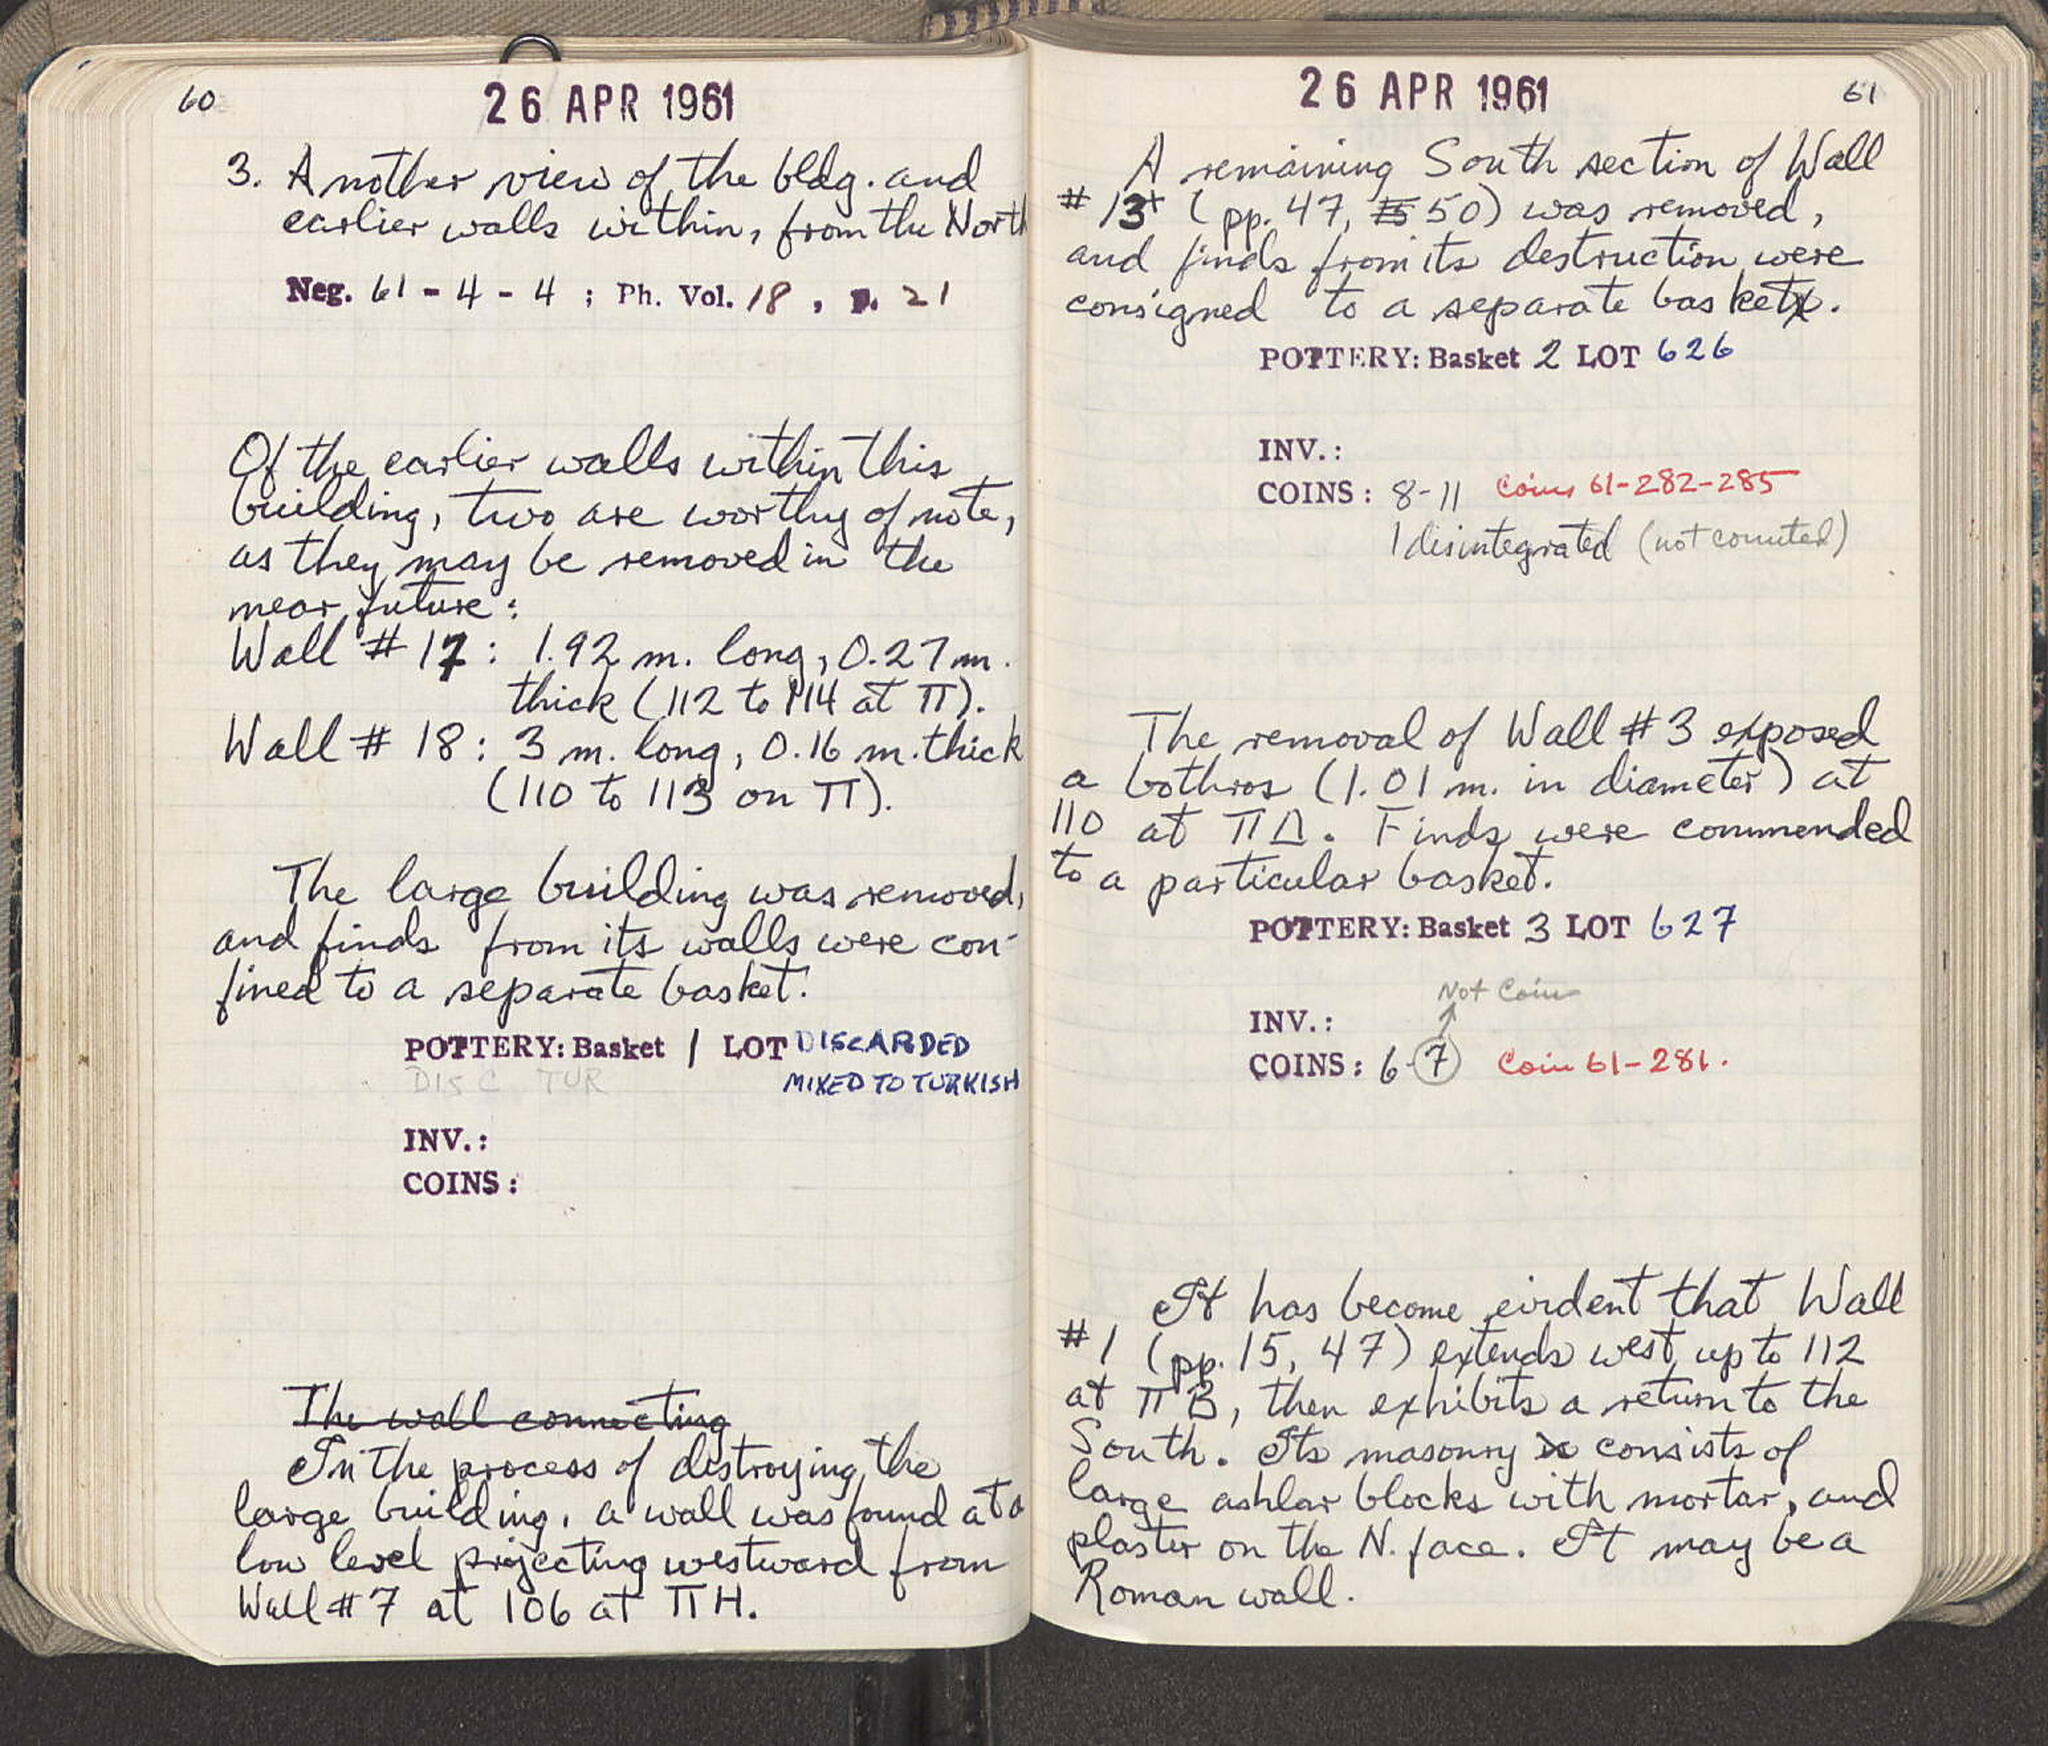 60
26 APR 1961
3. Another view of the bldg. and
earlier walls within, from the North
Neg. 61 - 4 - 4 ; Ph. Vol. 18 , p. 21
Of the earlier walls within this
building, two are worthy of note,
as they may be removed in the
near future:
Wall # 17 : 1.92 m. long, 0.27 m.
thick (112 to 114 at Π).
Wall # 18 : 3 m. long, 0.16 m. thick
(110 to 113 on Π).
The large building was removed,
and finds from its walls were con-
fined to a separate basket.
POTTERY: Basket 1 LOT DISCARDED
DISC TUR MIXED TO TURKISH
INV.:
COINS:
The wall connecting
In the process of destroying the
large building, a wall was found at a
low level projecting westward from
Wall # 7 at 106 at ΠH.
26 APR 1961
61
A remaining South section of Wall
# 13 (pp. 47, 50) was removed,
and finds from its destruction were
consigned to a separate basket.
POTTERY: Basket 2 LOT 626
INV.:
COINS: 8-11 Coins 61-282-285
1 disintegrated (not counted)
The removal of Wall # 3 exposed
a bothros (1.01 m. in diameter) at
110 at ΠΔ. Finds were commended
to a particular basket.
POTTERY: Basket 3 LOT 627
Not Coin
INV.:
COINS: 6-7 Coin 61-281.
It has become eivdent that Wall
# 1 (pp. 15, 47) extends west up to 112
at ΠB, then exhibits a return to the
South. Its masonry consists of
large ashlar blocks with mortar, and
plaster on the N. face. It may be a
Roman wall.